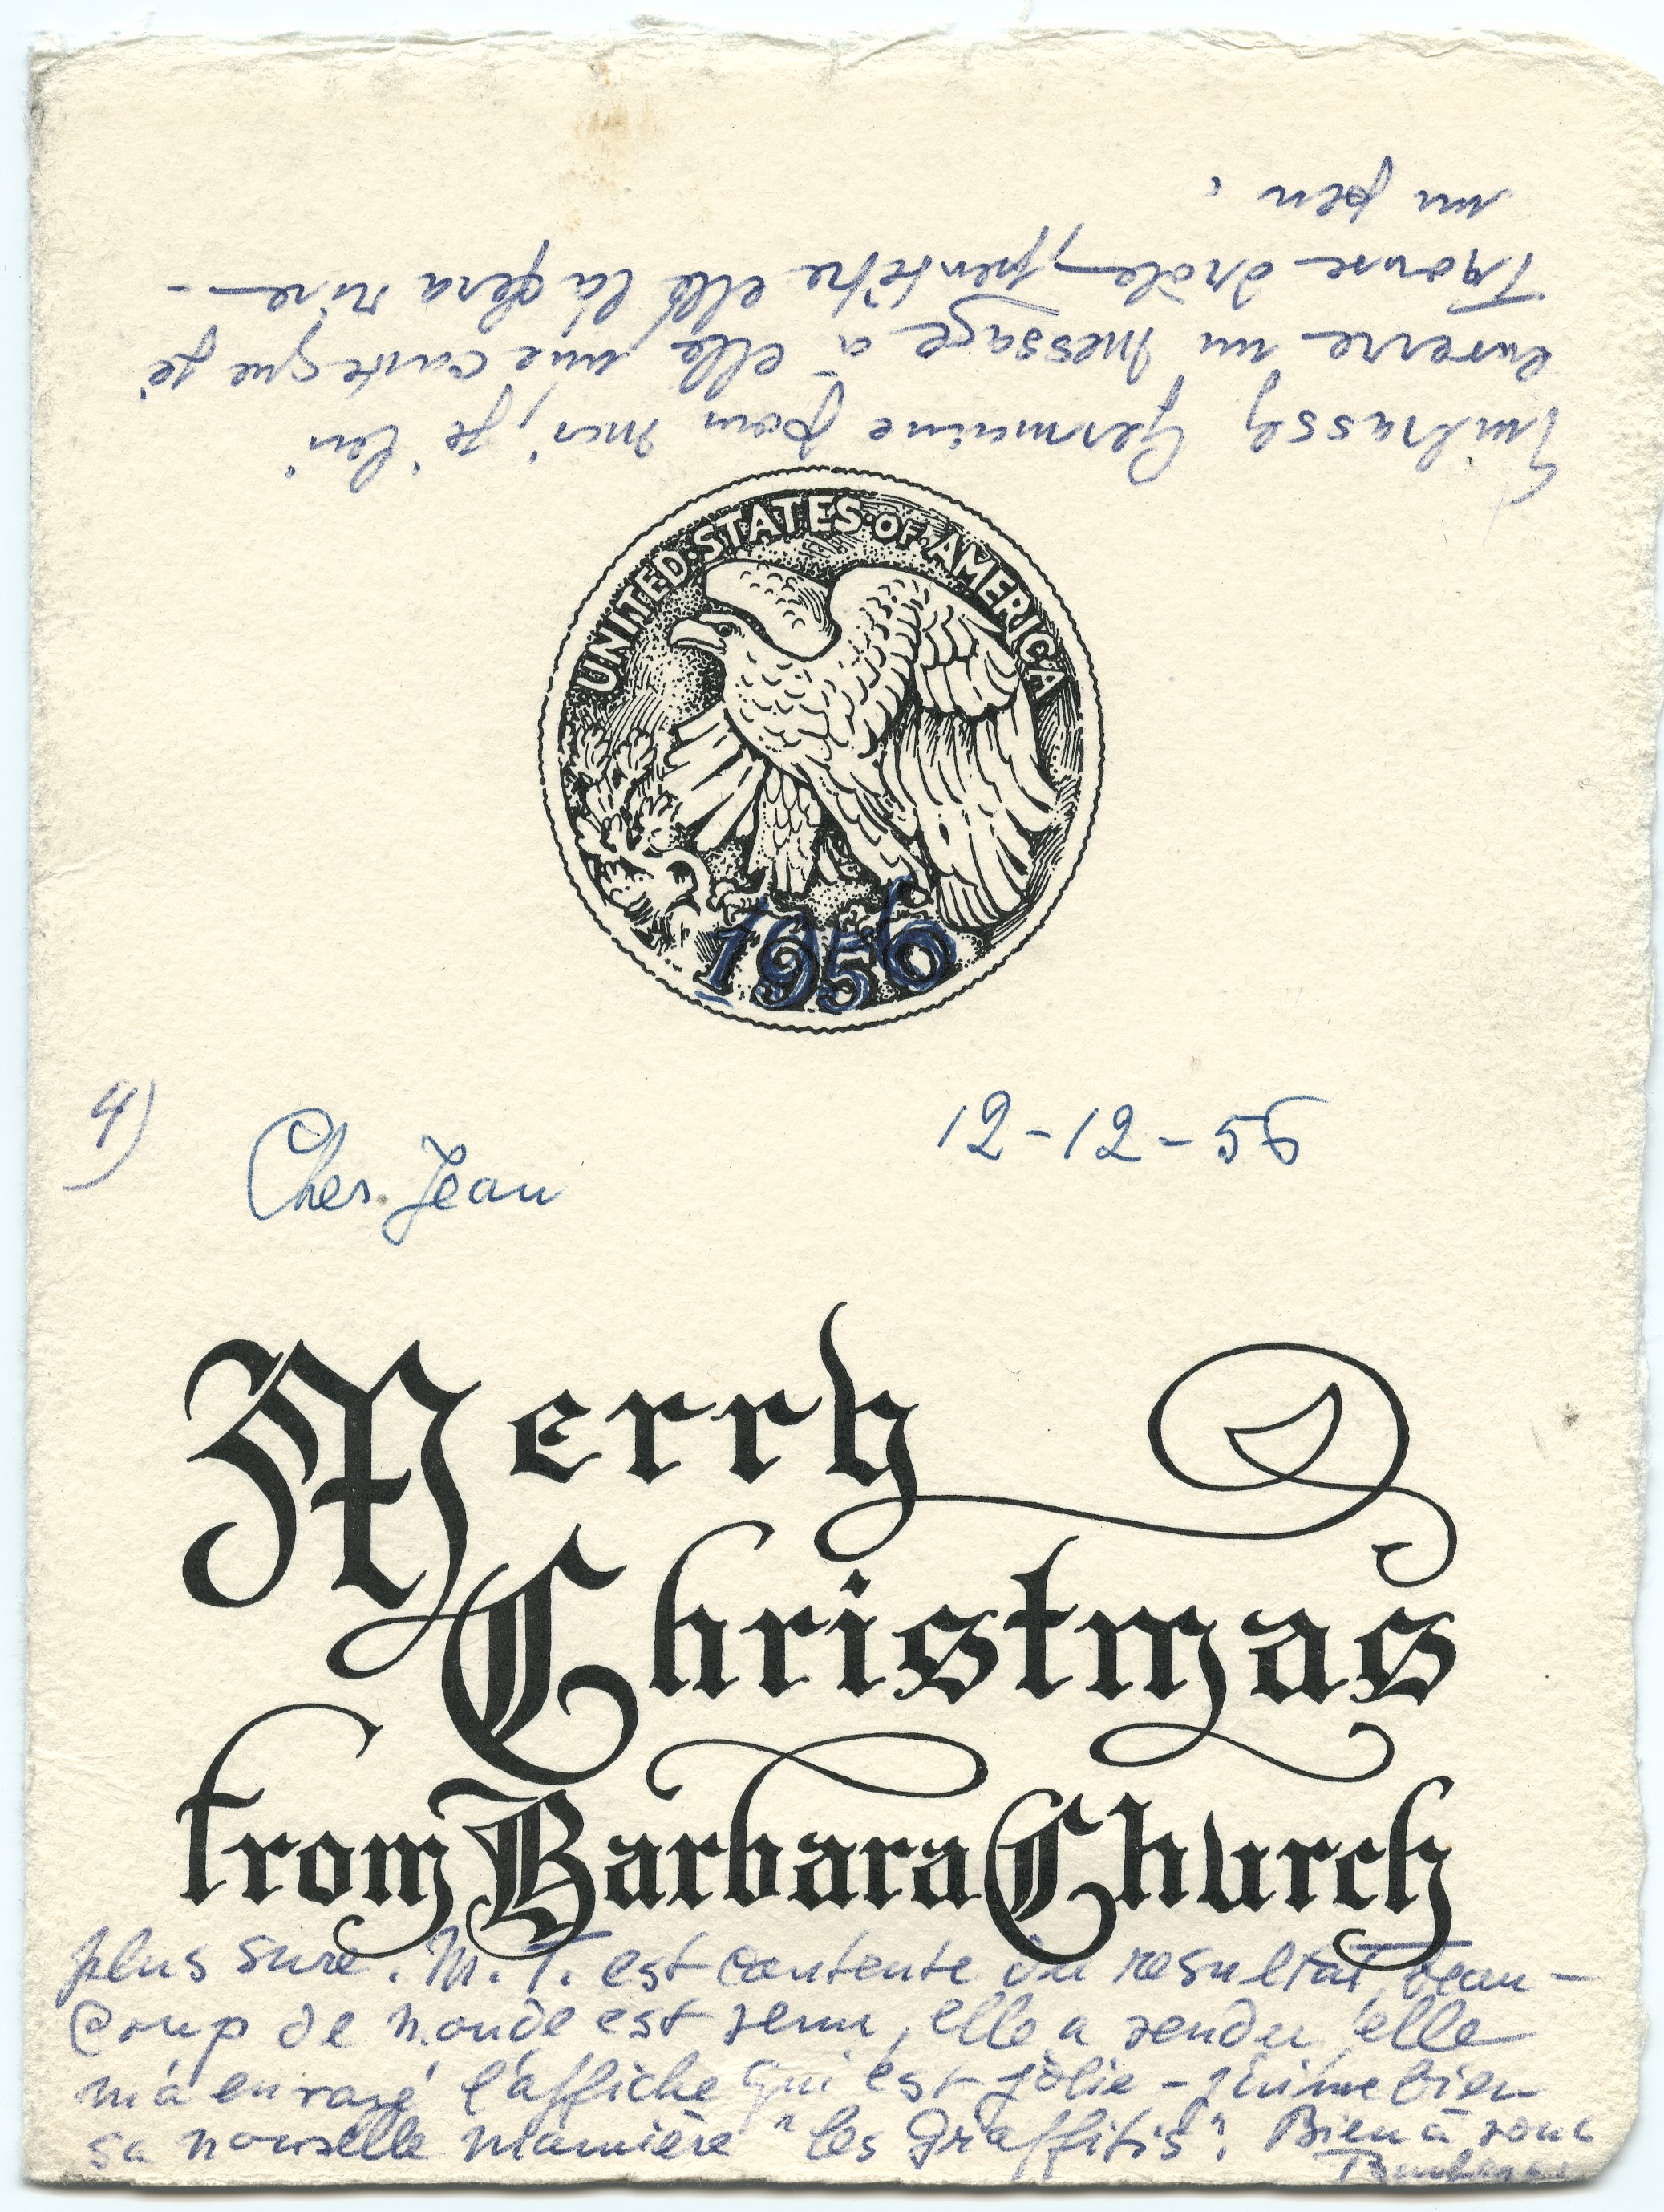 Embrassez Germaine pour moi, je lui
envoie un message à elle, une carte que je
trouve drôle, peutêtre elle la fera rire –
un peu.
UNITED·STATES·OF·AMERICA
1956
4)
12-12-56
Cher Jean
Merry
Christmas
from Barbara Church
plus sure. M. T. est contente du resultat, beau-
coup de monde est venu, elle a vendu, elle
m'a envoyé l'affiche qui est jolie – j'aime bien
sa nouvelle manière "les graffitis". Bien à vous
Barbara